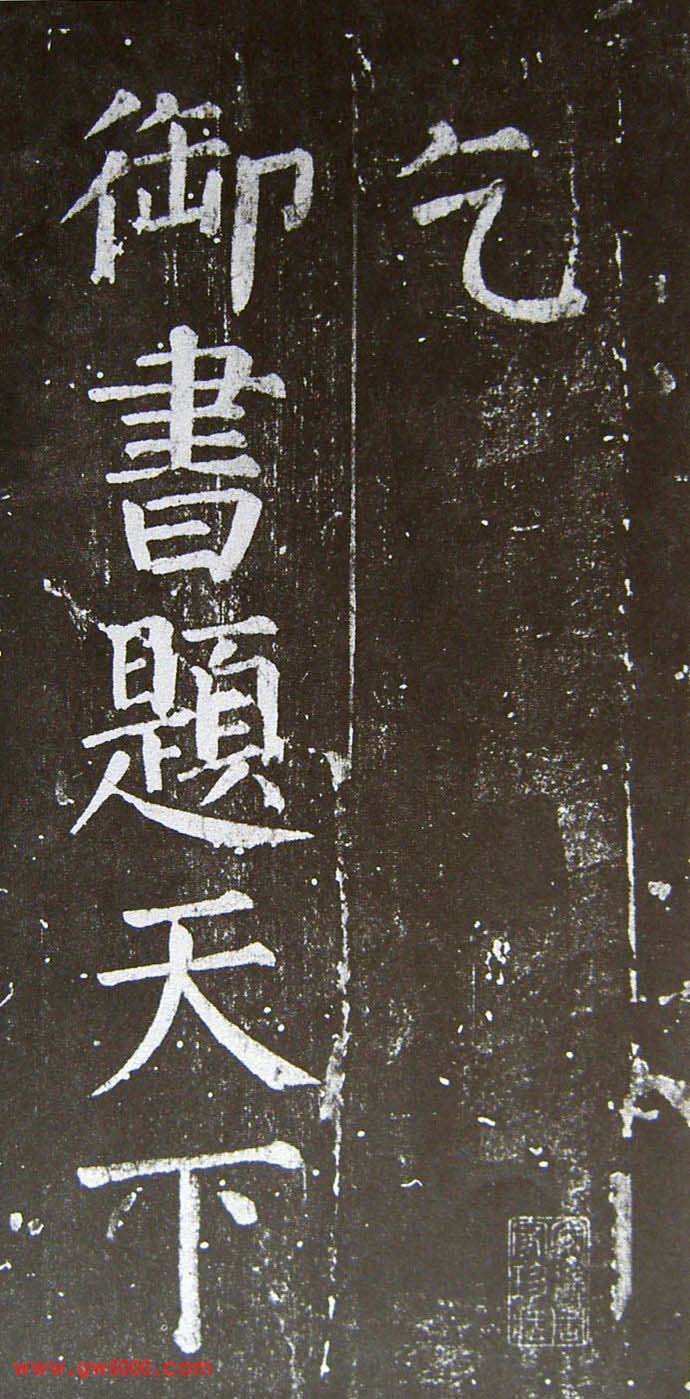 乞
御書題天下
www.gw5000.com